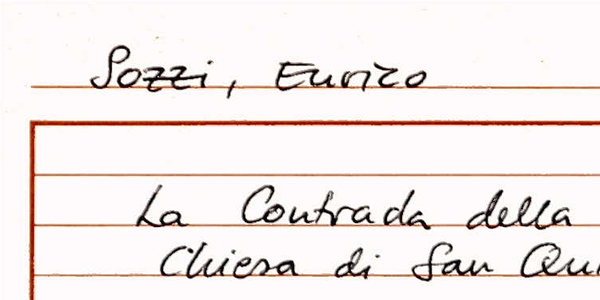 Sozzi, Enrico
La Contrada della
Chiesa di San Qu